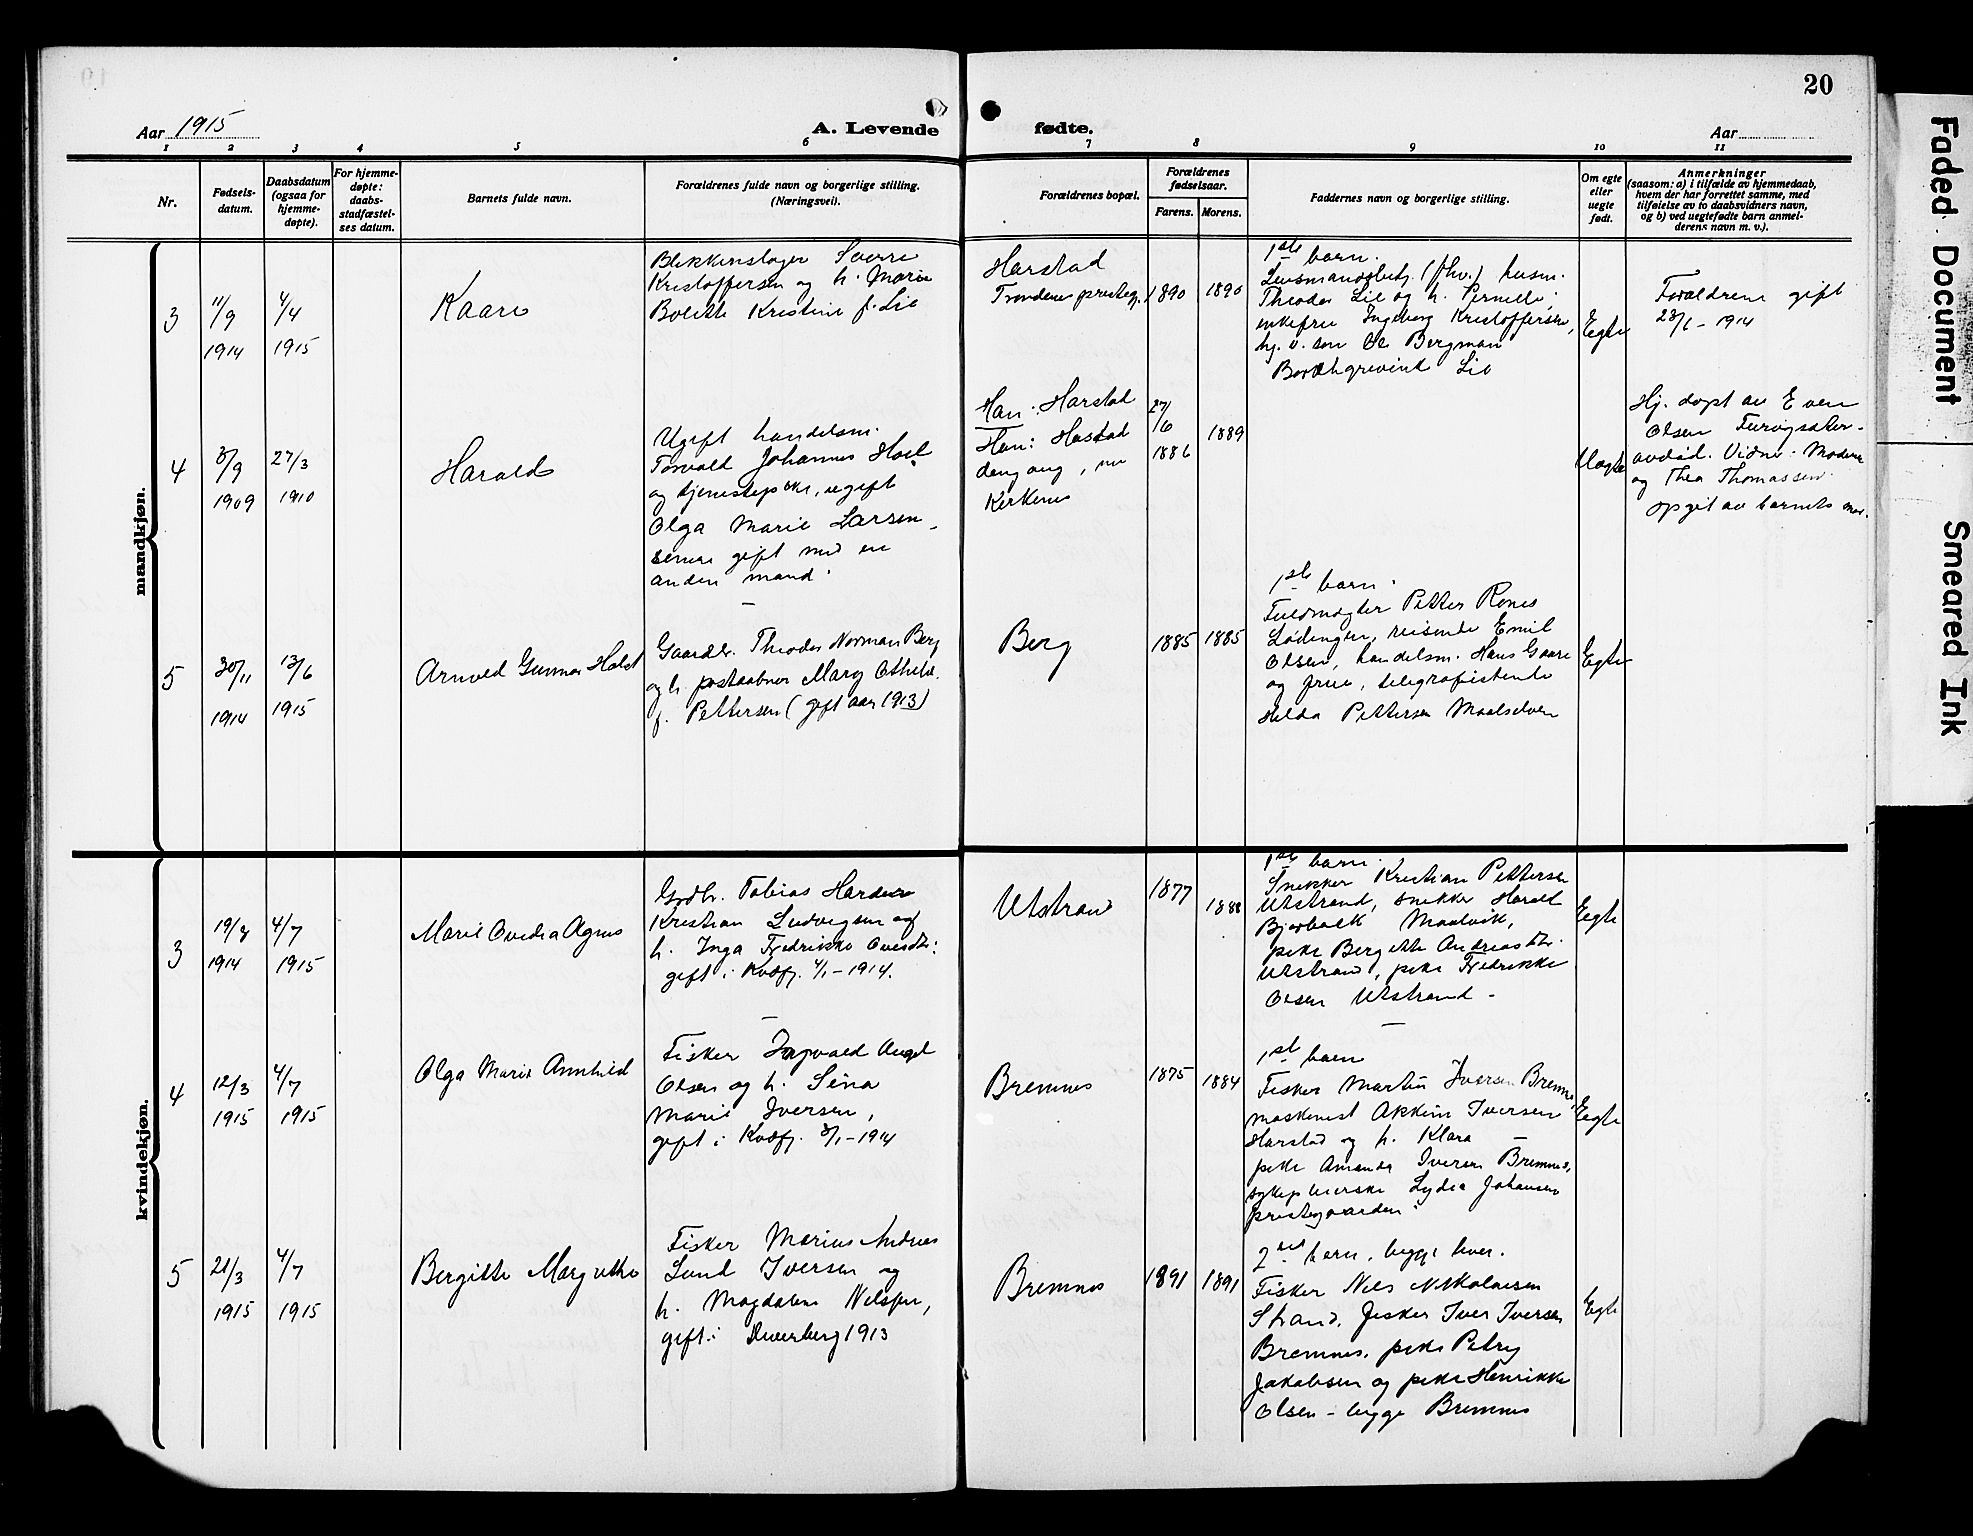 20
Aar 1915
A. Levende
fødte.
Aar
1 2 3 4 5 6 7 8 9 10 11
Nr.
Fødsels-
datum.
Daabsdatum
(ogsaa for
hjemme-
døpte).
For hjemme-
døpte:
daabs-
stadfæstel-
ses datum.
Barnets fulde navn.
Forældrenes fulde navn og borgerlige stilling.
(Næringsvei).
Forældrenes bopæl.
Forældrenes
fødselsaar.
Farens. Morens.
Faddernes navn og borgerlige stilling.
Om egte
eller
uegte
født.
Anmerkninger
(saasom: a) i tilfælde av hjemmedaab,
hvem der har forrettet samme, med
tilføielse av to daabsvidners navn,
og b) ved uegtefødte barn anmel-
derens navn m. v.).
mandkjøn.
3
11/9
1914
4/4
1915
Kaare
Blikkenslager Sverre
Kristoffersen og h. Marie
Bolette Kristine f. Lie
Harstad
Trondenes presteg.
1890
1890
1ste barn.
Lensmandsbetj. (fhv.) husm.
Theodor Lie og h. Pernille;
enkefru Ingeborg Kristoffersen,
hj. v. søn Ole Bergman
Borchgrevink Lie
Egte
Forældrene gift
23/1 - 1914
4
3/9
1909
27/3
1910
Harald
Ugift handelsm.
Torvald Johannes Hoel
og tjenestepike, ugift
Olga Marie Larsen -
senere gift med en
anden mand.
Han: Harstad
Hun: Harstad
dengang, nu
Kirkenes
27/6
1886
1889
Uegte
Hj. døpt av Even
Olsen
avdød. Vidne: Moderen
og Thea Thomassen.
opgit av barnets mor.
5
30/11
1914
13/6
1915
Arnold Gunnar Holst
Gaardbr. Theodor Norman Berg
og h. postaabner Mary Othelie
f. Pettersen (gift aar 1913)
Berg
1885
1885
1ste barn.
Fuldmægtig Petter Rones
Lødingen, reisende Emil
Olsen, handelsm. Hans Gaare
og frue, telegrafistinde
Hilda Pettersen Maalselven
Egte
kvindekjøn.
3
19/8
1914
4/7
1915
Marie Ovedia Agnes
Grdbr. Tobias Harder
Kristian Ludvigsen og
h. Inga Fredrikke Ovedie:
gift i Kvæfj. 4/1 - 1914.
Utstrand
1877
1888
1ste barn.
Snekker Kristian Pettersen
Utstrand, snekker Harald
Bjerbæk Maalvik,
pike Bergitte Andreasdtr.
Utstrand, pike Fredrikke
Olsen Utstrand -
Egte
4
12/3
1915
4/7
1915
Olga Marie Annhild
Fisker Ingvald Angel
Olsen og h. Sina
Marie Iversen,
gift i Kvæfj. 3/1 - 1914
Bremnes
1875
1884
1ste barn
Fisker Martin Iversen Bremnes,
maskinist Akkim Iversen
Harstad og h. Klara -
pike Amanda Iversen Bremnes,
sykepleierske Lydia Johansen
prestegaarden.
Egte
5
21/3
1915
4/7
1915
Bergitte Margrethe
Fisker Marius Andreas
Lund Iversen og
h. Magdalene Nilsen,
gift i Dverberg 1913
Bremnes
1891
1891
2net barn, begge lever.
Fisker Nils Nikolaisen
Strand, fisker Iver Iversen
Bremnes, pike Petry
Jakobsen og pike Henrikke
Olsen - begge Bremnes
Egte
Faded Document
Smeared Ink